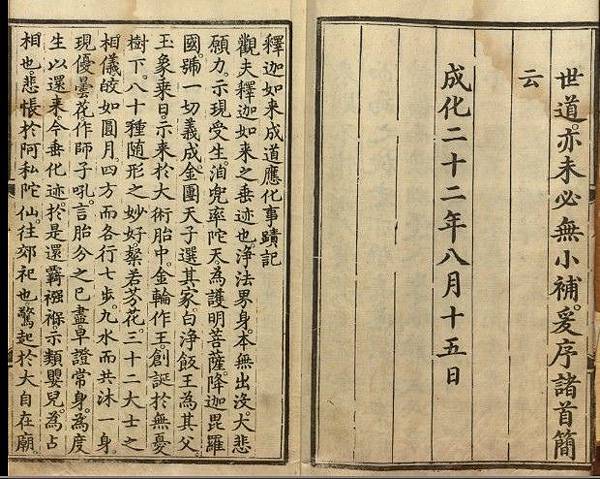 世道。亦未必無小補。爰序諸首簡
云
成化二十二年八月十五日
釋迦如來成道應化事蹟記
觀夫釋迦如來之垂迹也。淨法界身。本無出沒。大悲
願力。示現受生。洎兜率陀天。為護明菩薩。降迦毘羅
國。號一切義成。金團天子選其家。白淨飯王為其父。
玉象乘日。示來於大術胎中。金輪作王。創誕於無憂
樹下。八十種隨形之妙好。粲若芬花。三十二大士之
相儀。皎如圓月。四方而各行七步。九水而共沐一身。
現優曇花。作師子吼。言胎分之已盡。早證常身。為度
生以還來。今垂化迹。於是還羇襁褓。示類嬰兒。為占
相也。悲悵於阿私陀仙。往郊祀也。驚起於大自在廟。